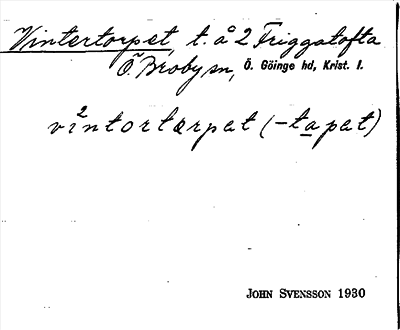 Vintertorpet, t. å 2 Friggatofta
Ö Broby sn, Ö. Göinge hd, Krist. l.
vi²ntortærpat (-tapat)
JOHN SVENSSON 1930